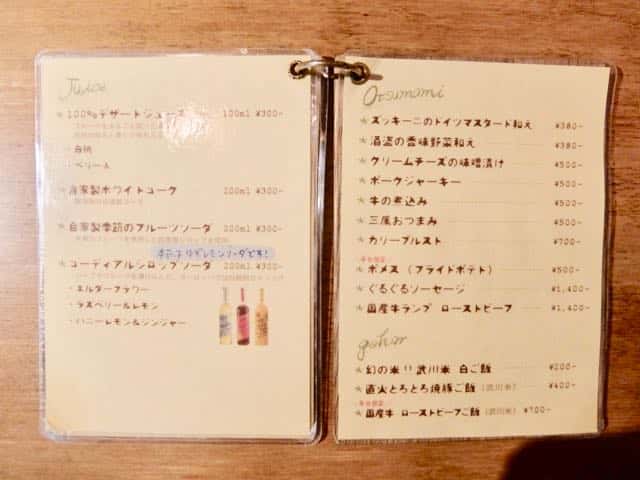 Juice
★ 100%デザートジュース 100ml ¥300-
・白桃
・ベリーA
★ 自家製ホワイトコーク 200ml ¥300-
★ 自家製季節のフルーツソーダ 200ml ¥300-
本日はゆずレモンソーダです!
★ コーディアルシロップソーダ 200ml ¥300-
・エルダーフラワー
・ラズベリー&レモン
・ハニーレモン&ジンジャー
Otsumami
★ ズッキーニのドイツマスタード和え ¥380-
★ 酒盗の香味野菜和え ¥380-
★ クリームチーズの味噌漬け ¥500-
★ ポークジャーキー ¥500-
★ 牛の煮込み ¥500-
★ 三風おつまみ ¥500-
★ カリーブルスト ¥700-
★ ポメス (フライドポテト) ¥500-
★ ぐるぐるソーセージ ¥1,400-
★ 国産牛ランプ ローストビーフ ¥1,400-
gohan
★ 幻の米!! 武川米 白ご飯 ¥200-
★ 直火とろとろ焼豚ご飯 (武川米) ¥400-
★ 国産牛 ローストビーフご飯 (武川米) ¥700-